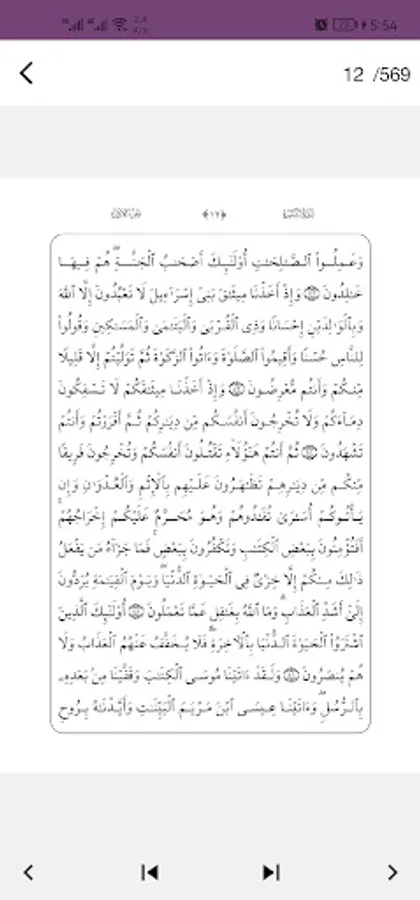 5:54
12 /569
﴿١٢﴾
وَعَمِلُوا۟ ٱلصَّٰلِحَٰتِ أُو۟لَٰٓئِكَ أَصْحَٰبُ ٱلْجَنَّةِ ۖ هُمْ فِيهَا
خَٰلِدُونَ ۝ وَإِذْ أَخَذْنَا مِيثَٰقَ بَنِىٓ إِسْرَٰٓءِيلَ لَا تَعْبُدُونَ إِلَّا ٱللَّهَ
وَبِٱلْوَٰلِدَيْنِ إِحْسَانًا وَذِى ٱلْقُرْبَىٰ وَٱلْيَتَٰمَىٰ وَٱلْمَسَٰكِينِ وَقُولُوا۟
لِلنَّاسِ حُسْنًا وَأَقِيمُوا۟ ٱلصَّلَوٰةَ وَءَاتُوا۟ ٱلزَّكَوٰةَ ثُمَّ تَوَلَّيْتُمْ إِلَّا قَلِيلًا
مِّنكُمْ وَأَنتُم مُّعْرِضُونَ ۝ وَإِذْ أَخَذْنَا مِيثَٰقَكُمْ لَا تَسْفِكُونَ
دِمَآءَكُمْ وَلَا تُخْرِجُونَ أَنفُسَكُم مِّن دِيَٰرِكُمْ ثُمَّ أَقْرَرْتُمْ وَأَنتُمْ
تَشْهَدُونَ ۝ ثُمَّ أَنتُمْ هَٰٓؤُلَآءِ تَقْتُلُونَ أَنفُسَكُمْ وَتُخْرِجُونَ فَرِيقًا
مِّنكُم مِّن دِيَٰرِهِمْ تَظَٰهَرُونَ عَلَيْهِم بِٱلْإِثْمِ وَٱلْعُدْوَٰنِ وَإِن
يَأْتُوكُمْ أُسَٰرَىٰ تُفَٰدُوهُمْ وَهُوَ مُحَرَّمٌ عَلَيْكُمْ إِخْرَاجُهُمْ ۚ
أَفَتُؤْمِنُونَ بِبَعْضِ ٱلْكِتَٰبِ وَتَكْفُرُونَ بِبَعْضٍ ۚ فَمَا جَزَآءُ مَن يَفْعَلُ
ذَٰلِكَ مِنكُمْ إِلَّا خِزْىٌ فِى ٱلْحَيَوٰةِ ٱلدُّنْيَا ۖ وَيَوْمَ ٱلْقِيَٰمَةِ يُرَدُّونَ
إِلَىٰٓ أَشَدِّ ٱلْعَذَابِ ۗ وَمَا ٱللَّهُ بِغَٰفِلٍ عَمَّا تَعْمَلُونَ ۝ أُو۟لَٰٓئِكَ ٱلَّذِينَ
ٱشْتَرَوُا۟ ٱلْحَيَوٰةَ ٱلدُّنْيَا بِٱلْءَاخِرَةِ ۖ فَلَا يُخَفَّفُ عَنْهُمُ ٱلْعَذَابُ وَلَا
هُمْ يُنصَرُونَ ۝ وَلَقَدْ ءَاتَيْنَا مُوسَى ٱلْكِتَٰبَ وَقَفَّيْنَا مِنۢ بَعْدِهِۦ
بِٱلرُّسُلِ ۖ وَءَاتَيْنَا عِيسَى ٱبْنَ مَرْيَمَ ٱلْبَيِّنَٰتِ وَأَيَّدْنَٰهُ بِرُوحِ